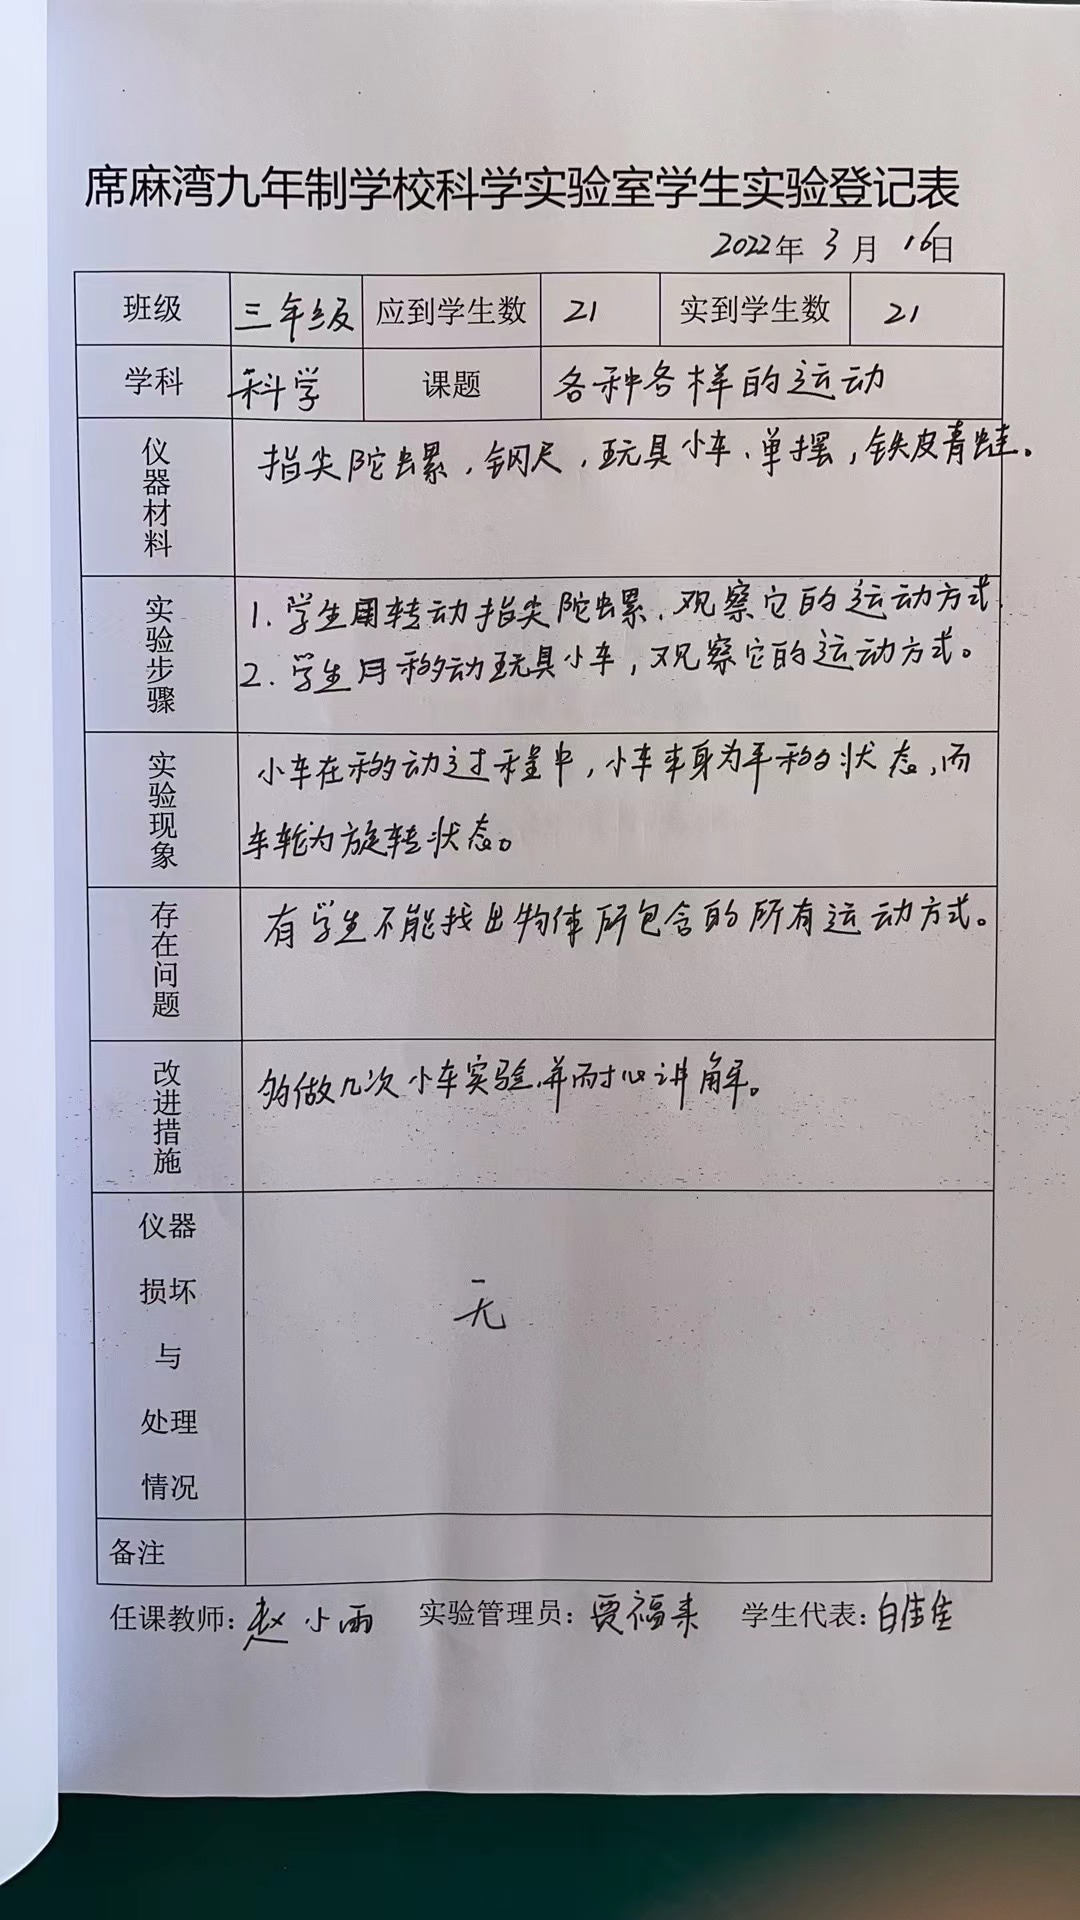 席麻湾九年制学校科学实验室学生实验登记表
2022年 3月 16日
班级 三年级 应到学生数 21 实到学生数 21
学科 科学 课题 各种各样的运动
仪器材料 指尖陀螺，钢尺，玩具小车、单摆，铁皮青蛙。
实验步骤 1. 学生用转动指尖陀螺，观察它的运动方式。
2. 学生用移动玩具小车，观察它的运动方式。
实验现象 小车在移动过程中，小车车身为平移的状态，而
车轮为旋转状态。
存在问题 有学生不能找出物体所包含的所有运动方式。
改进措施 多做几次小车实验，并耐心讲解。
仪器
损坏
与
处理
情况
无
备注
任课教师：赵小雨 实验管理员：贾福来 学生代表：白佳佳